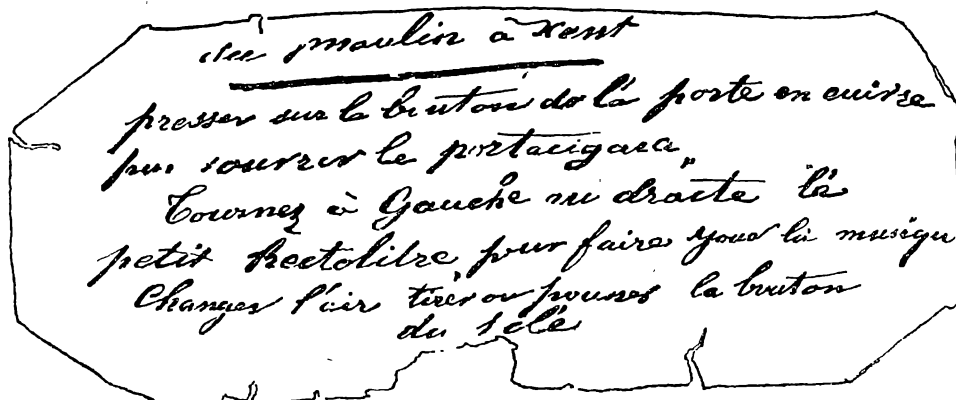 du moulin à vent
presser sur le bouton de la porte en cuivre
pur le portacigara
Tournez à Gauche ou droite la
petit hectolitre pur faire la musique
Changer l'air tirer ou pousser la bouton
du